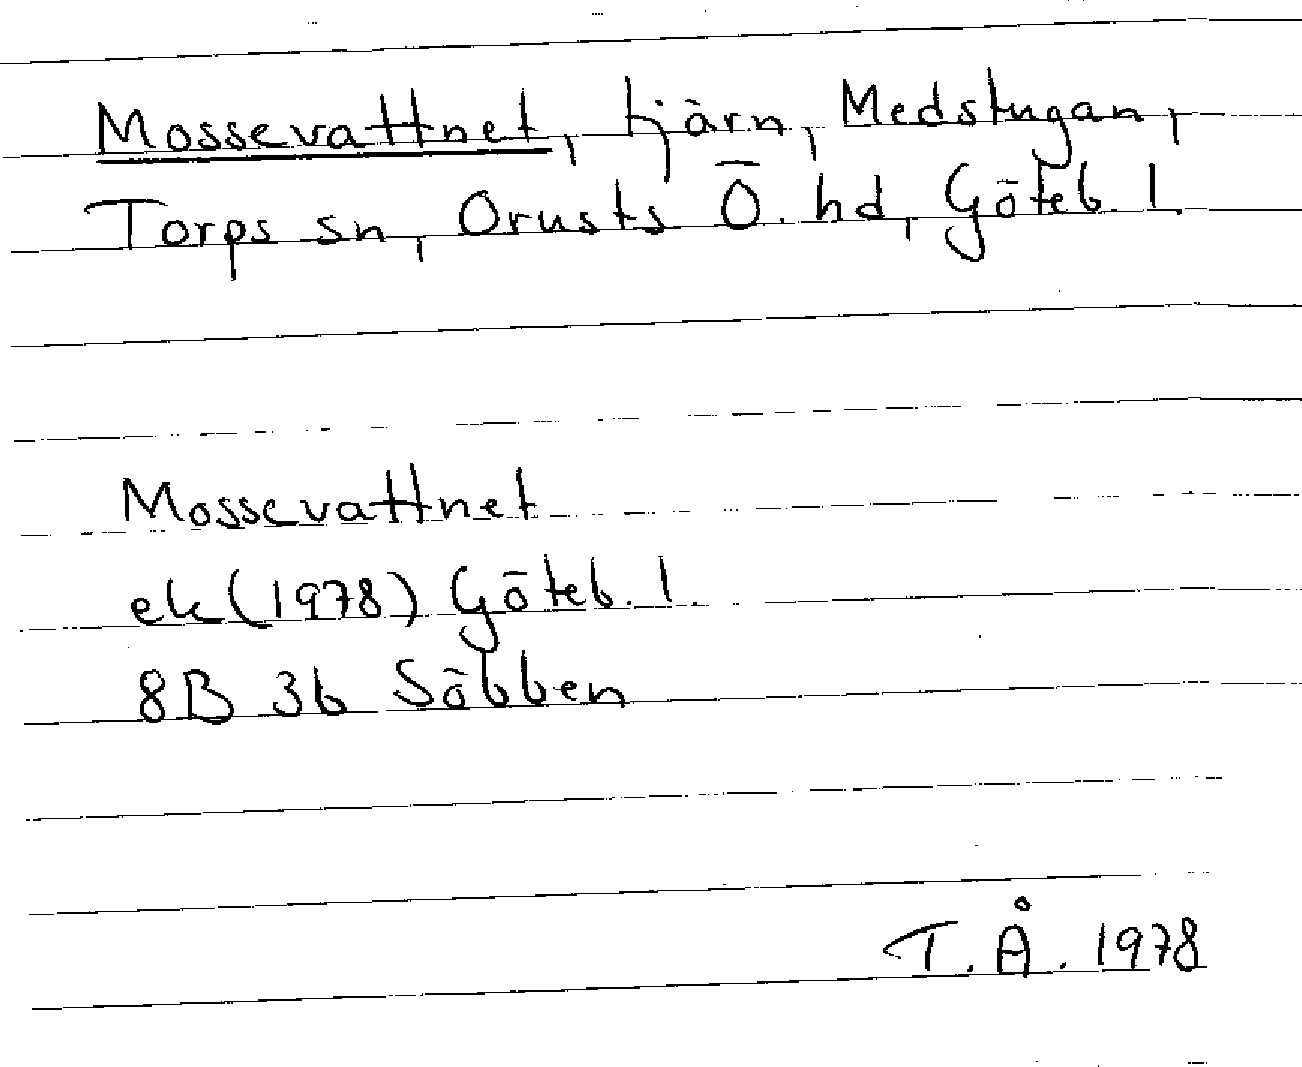 Mossevattnet, tjärn, Medstugan,
Torps sn, Orusts Ö. hd, Göteb. l.
Mossevattnet
ek (1978) Göteb. l.
8B 3b Söbben
T. Å. 1978